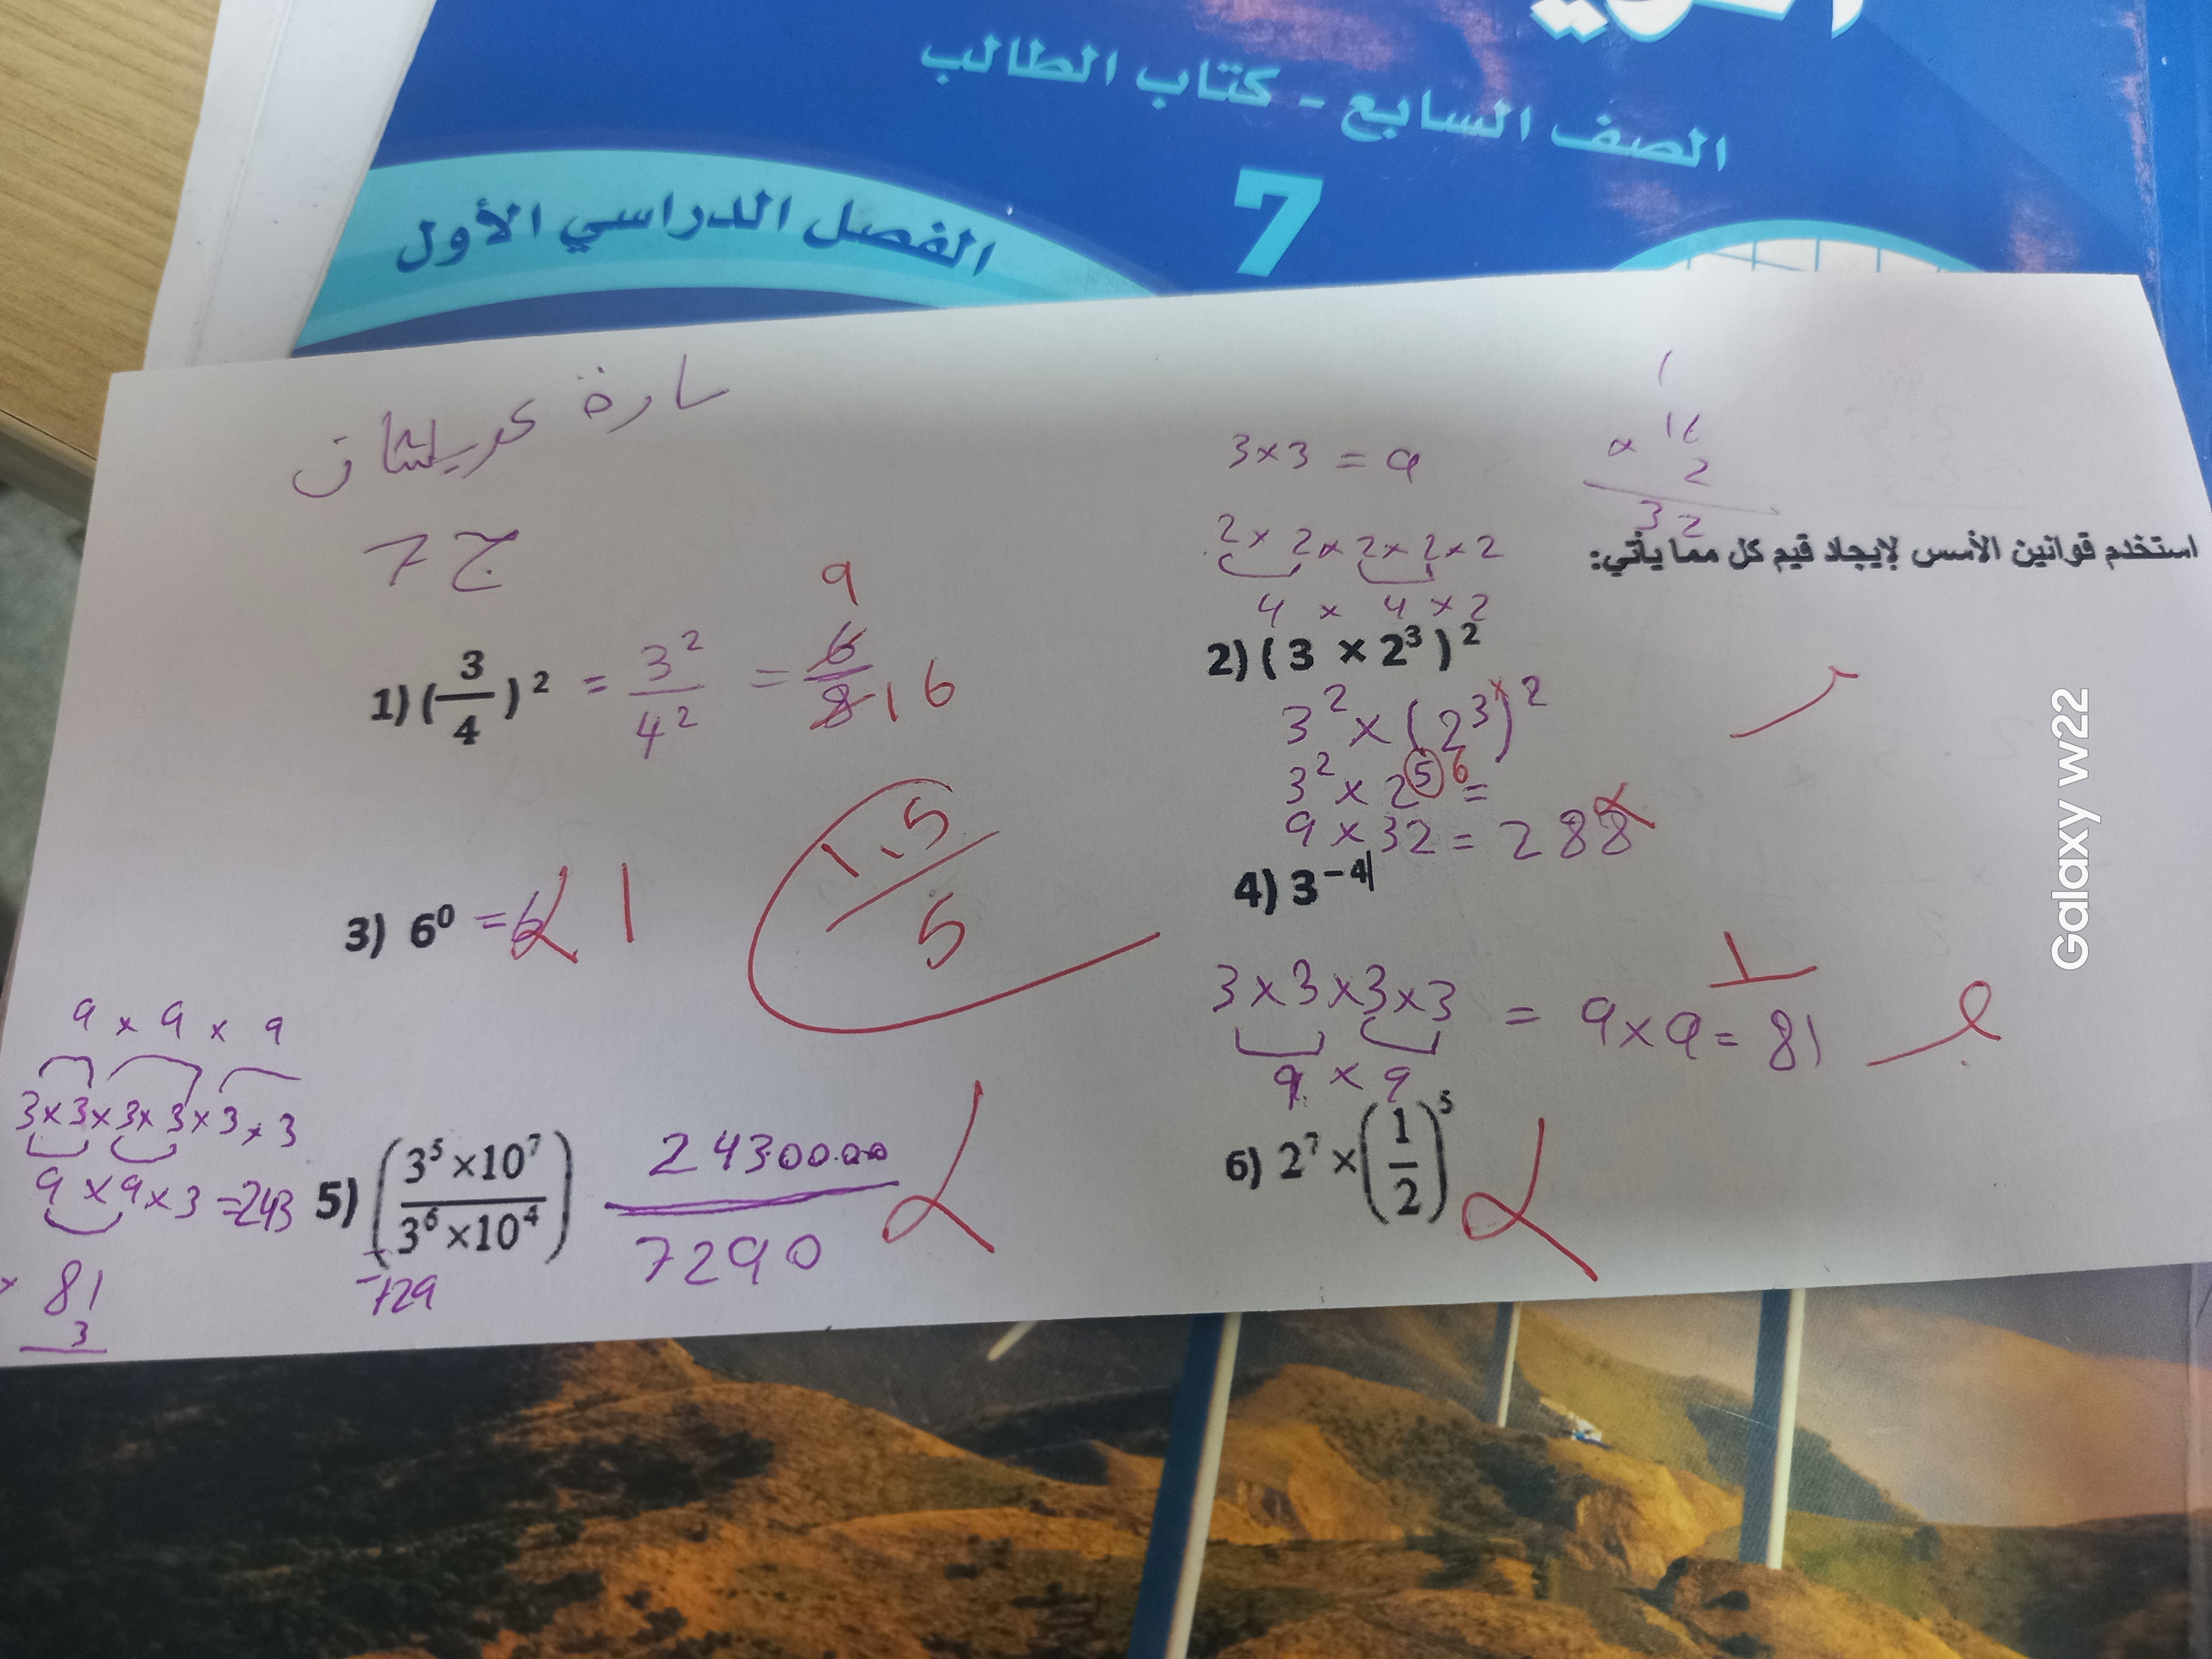 الصف السابع - كتاب الطالب
7
الفصل الدراسي الأول
سارة
7 ج
3×3 = 9
16
× 2
32
2 × 2 × 2 × 2 × 2
4 × 4 × 2
استخدم قوانين الأسس لإيجاد قيم كل مما يأتي:
1) (3/4)² = 3²/4² = 6/8 9 16
2) (3 × 2³)²
3² × (2³)² ×
3² × 2⁵ = 6
9 × 32 = 288
3) 6⁰ = 6 1
1.5/5
4) 3⁻⁴
3×3×3×3 = 9×9 = 81 1
9 × 9
9 × 9 × 9
3×3×3×3×3×3
9 × 9 × 3 = 243
× 81
3
5) (3⁵×10⁷ / 3⁶×10⁴) 2430000 / 7290
729
6) 2⁷ × (1/2)⁵
Galaxy w22